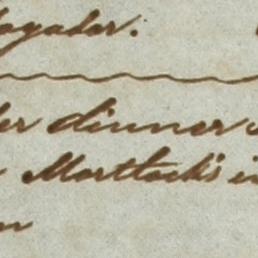 Mogador.
er dinner
Mortlock's in